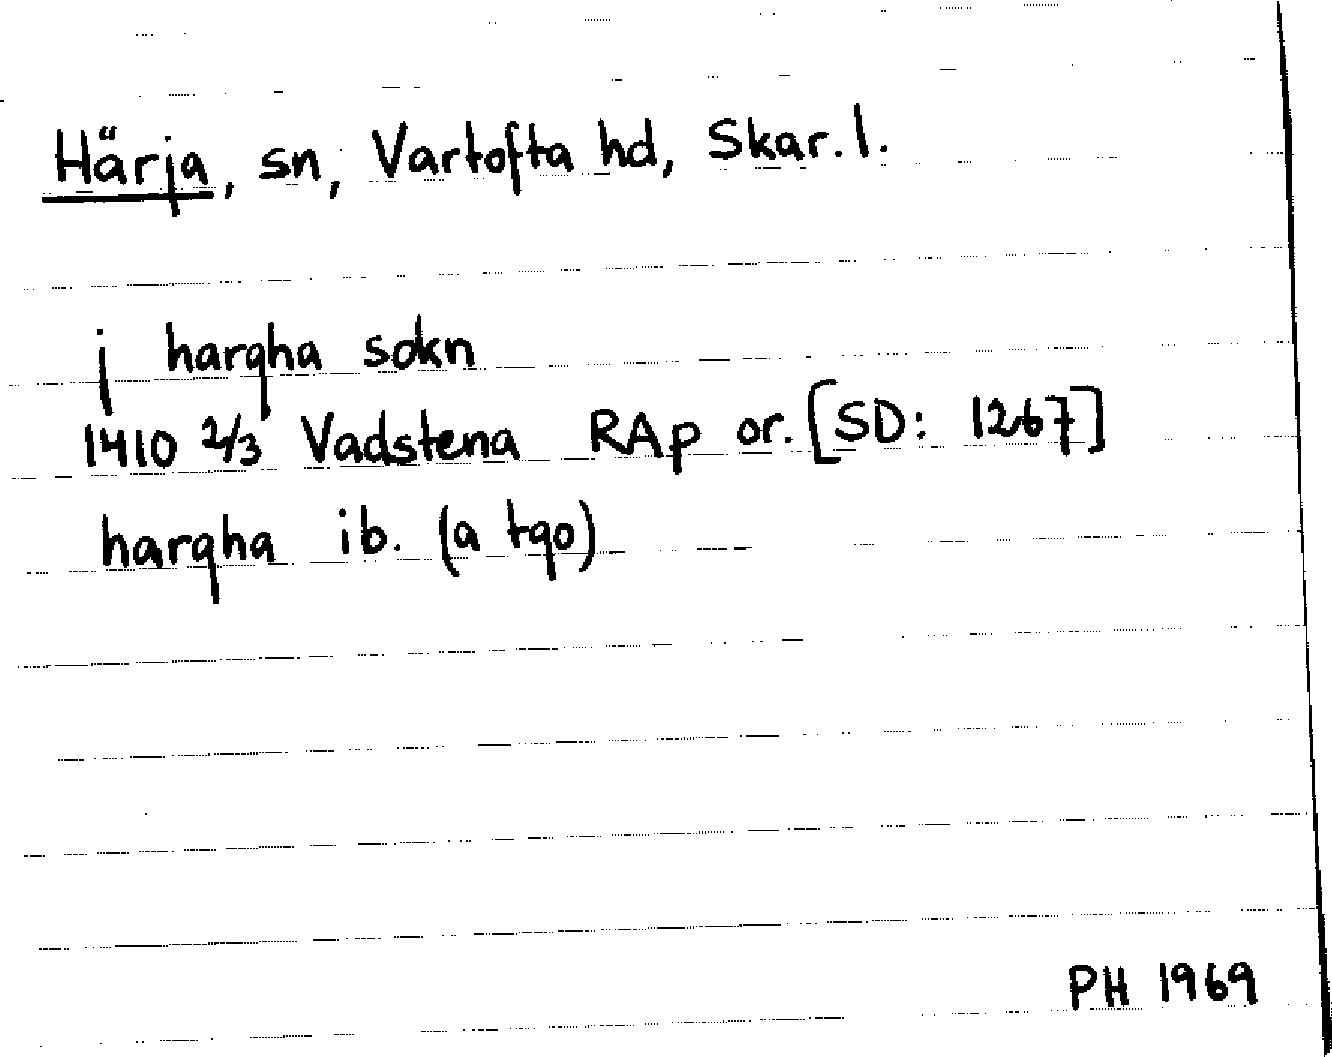 Härja, sn, Vartofta hd, Skar. l.
j hargha sokn
1410 2/3 Vadstena RAp or. [SD: 1267]
hargha ib. (a tgo)
PH 1969